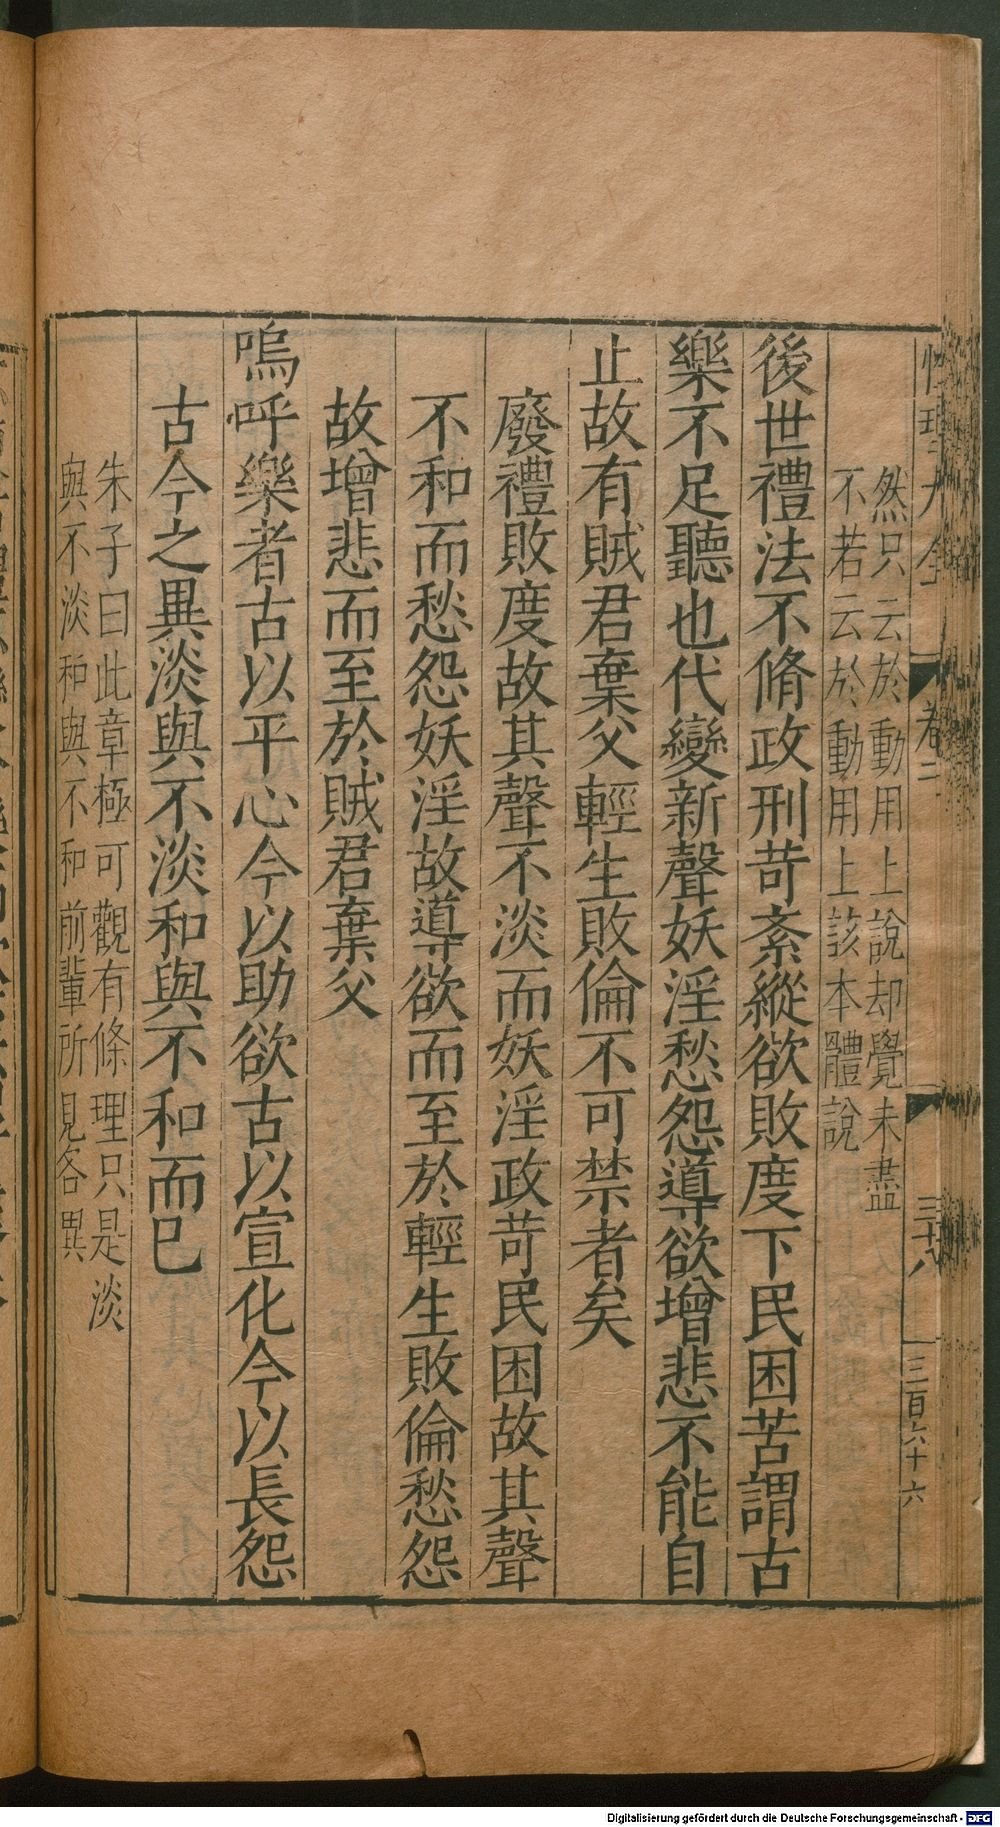 性理大全 卷二 三十八 三百六十六
然只云於動用上說却覺未盡
不若云於動用上該本體說
後世禮法不脩政刑苛紊縱欲敗度下民困苦謂古
樂不足聽也代變新聲妖淫愁怨導欲增悲不能自
止故有賊君棄父輕生敗倫不可禁者矣
廢禮敗度故其聲不淡而妖淫政苛民困故其聲
不和而愁怨妖淫故導欲而至於輕生敗倫愁怨
故增悲而至於賊君棄父
嗚呼樂者古以平心今以助欲古以宣化今以長怨
古今之異淡與不淡和與不和而已
朱子曰此章極可觀有條理只是淡
與不淡和與不和前輩所見各異
Digitalisierung gefördert durch die Deutsche Forschungsgemeinschaft - DFG